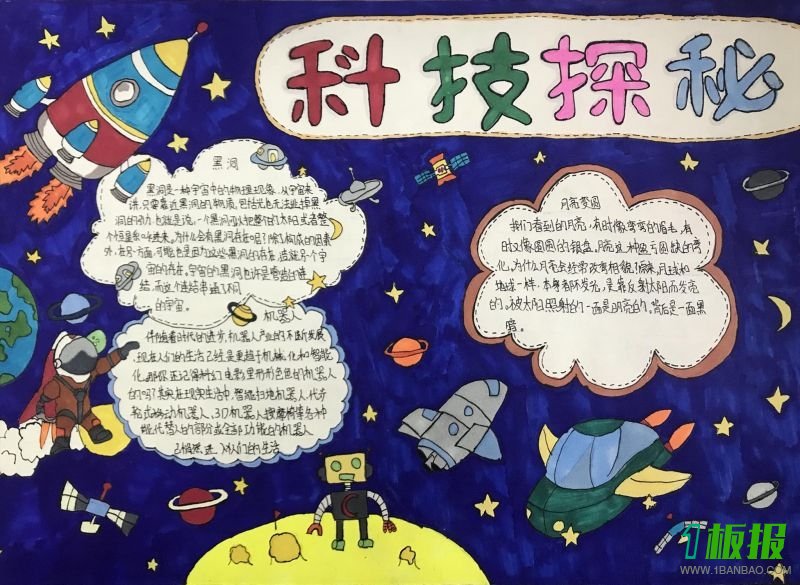 科技探秘
黑洞
黑洞是一种宇宙中的物理现象,从宇宙来
讲,只要靠近黑洞的物质,包括光也无法逃掉黑
洞的引力,也就是说,一个黑洞可以把整个太阳或者整
个恒星系进来,为什么会有黑洞存在呢?除了构成的因素
外,在另一方面,可能也是因为这些黑洞的存在,造就另个宇
宙的存在,宇宙的黑洞也许是管道的连
结,而这个连结串通了不同
的宇宙。
机器人
伴随着时代的进步,机器人产业的不断发展,
现在人们的生活已经是重趋于机械化和智能
化,那你还记得科幻电影里形形色色的机器人
的吗?其实在现实生活中,智能扫地机器人,代步
机器人,3D机器人按摩椅等各种
能代替人的部分或全部功能的机器人
已经进入人们的生活
月亮变圆
我们看到的月亮,有时像弯弯的眉毛,有
时又像圆圆的银盘,月亮这种盈亏圆缺的变
化,为什么月亮会经常改变相貌?原来,月球和
地球一样,本身都不发光,是靠反射太阳而发亮
的,被太阳照射的一面是明亮的,背后是一面黑
暗。
1板报
WWW.1BANBAO.COM